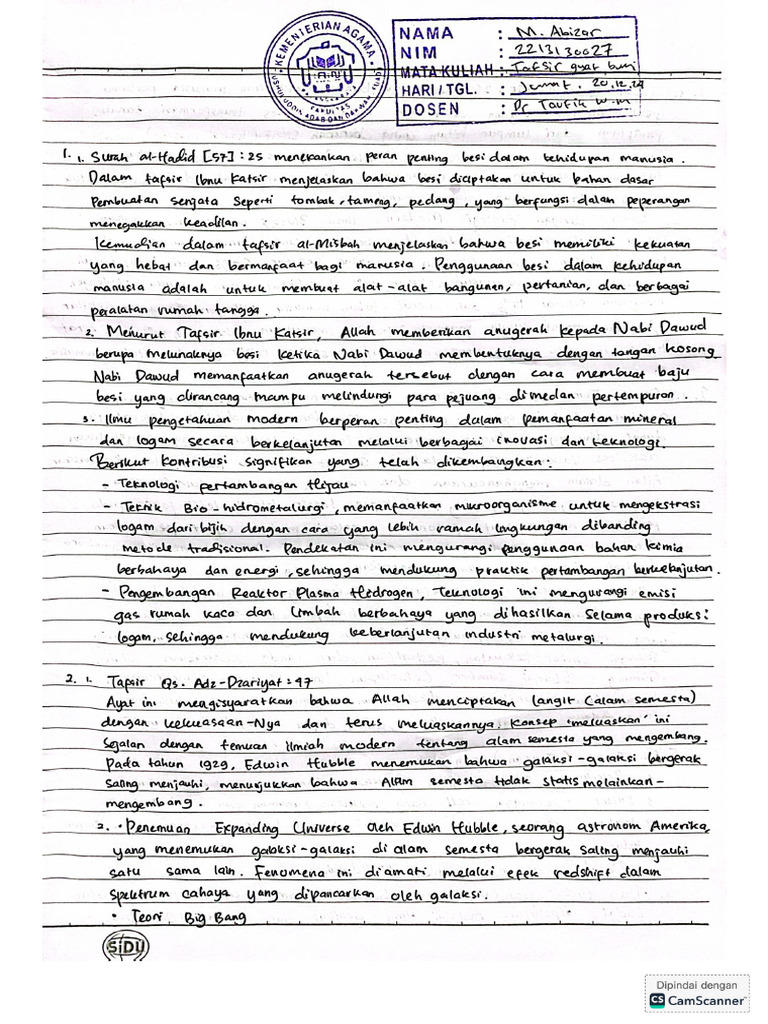 KEMENTERIAN AGAMA
FAKULTAS
USHULUDDIN ADAB DAN DAKWAH
NAMA : M. Abizar
NIM : 2213130027
MATA KULIAH : Tafsir ayat bumi
HARI / TGL. : Jumat, 20.12.24
DOSEN : Dr Taufik W.M
1. 1. Surah al-Hadid [57] : 25 menekankan peran penting besi dalam kehidupan manusia.
Dalam tafsir Ibnu Katsir menjelaskan bahwa besi diciptakan untuk bahan dasar
Pembuatan Senjata Seperti tombak, tameng, pedang, yang berfungsi dalam peperangan
menegakkan keadilan.
Kemudian dalam tafsir al-Misbah menjelaskan bahwa besi memiliki kekuatan
yang hebat dan bermanfaat bagi manusia. Penggunaan besi dalam kehidupan
manusia adalah untuk membuat alat-alat bangunan, pertanian, dan berbagai
peralatan rumah tangga.
2. Menurut Tafsir Ibnu Katsir, Allah memberikan anugerah kepada Nabi Dawud
berupa melunaknya besi ketika Nabi Dawud membentuknya dengan tangan kosong
Nabi Dawud memanfaatkan anugerah tersebut dengan cara membuat baju
besi yang dirancang mampu melindungi para pejuang dimedan pertempuran.
3. Ilmu pengetahuan modern berperan penting dalam pemanfaatan mineral
dan logam secara berkelanjutan melalui berbagai inovasi dan teknologi.
Berikut kontribusi signifikan yang telah dikembangkan:
- Teknologi pertambangan Hijau
- Teknik Bio-hidrometalurgi, memanfaatkan mikroorganisme untuk mengekstrasi
logam dari bijih dengan cara yang lebih ramah lingkungan dibanding
metode tradisional. Pendekatan ini mengurangi penggunaan bahan kimia
berbahaya dan energi, sehingga mendukung praktik pertambangan berkelanjutan.
- Pengembangan Reaktor Plasma Hidrogen, Teknologi ini mengurangi emisi
gas rumah kaca dan limbah berbahaya yang dihasilkan selama produksi
logam, sehingga mendukung keberlanjutan industri metalurgi.
2. 1. Tafsir Qs. Adz-Dzariyat : 47
Ayat ini mengisyaratkan bahwa Allah menciptakan langit (alam semesta)
dengan kekuasaan-Nya dan terus meluaskannya. Konsep 'meluaskan' ini
Sejalan dengan temuan Ilmiah modern tentang alam semesta yang mengembang.
Pada tahun 1929, Edwin Hubble menemukan bahwa galaksi-galaksi bergerak
saling menjauhi, menunjukkan bahwa Alam semesta tidak statis melainkan-
mengembang.
2. • Penemuan Expanding Universe oleh Edwin Hubble, seorang astronom Amerika,
yang menemukan galaksi-galaksi di alam semesta bergerak saling menjauhi
satu sama lain. Fenomena ini diamati melalui efek redshift dalam
spektrum cahaya yang dipancarkan oleh galaksi.
• Teori Big Bang
SiDU
Dipindai dengan
CS CamScanner